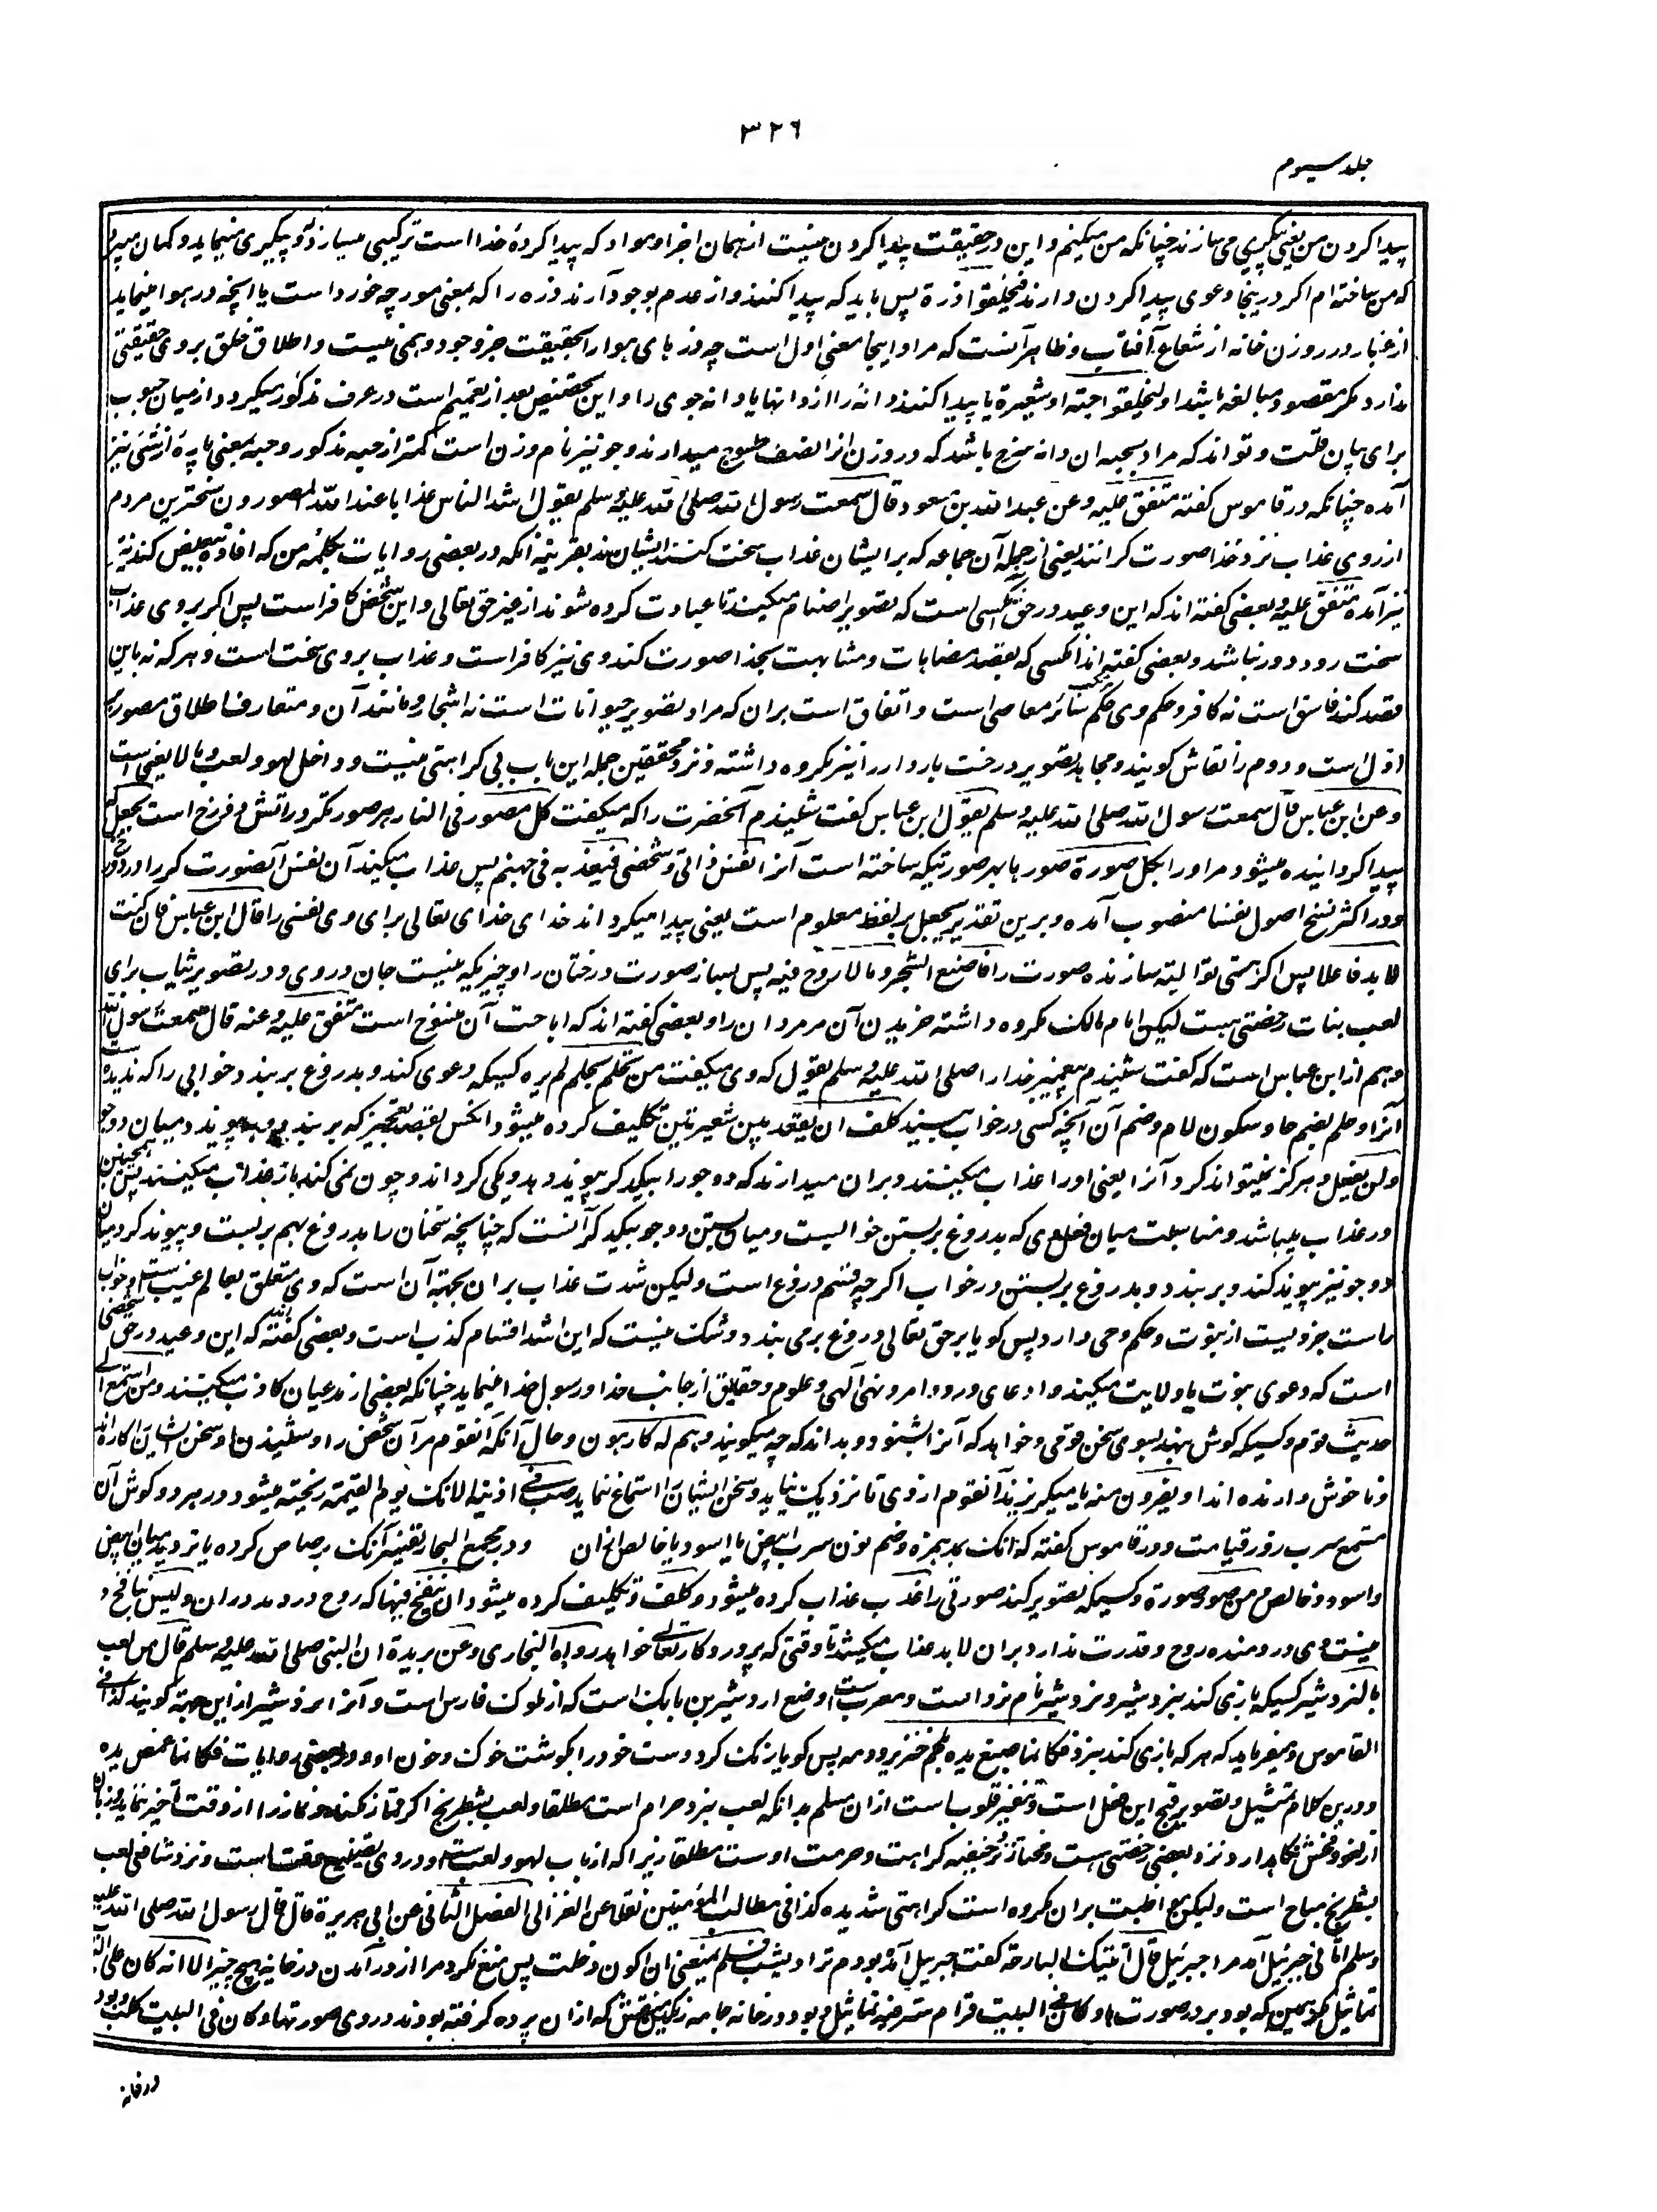 ۳۲۶
جلد سیوم
پیدا کردن من یعنی پیکری می سازند چنانکه من میکنم و این در حقیقت پیدا کردن نیست از همان اجزا و مواد که پیدا کردهٔ خدا است ترکیبی میسازد و پیکیری مینماید و کمان میبرد
که من ساخته ام اکر در ینجا دعوی پیدا کردن دارند فلیخلقوا ذرة پس باید که پیدا کنند و از عدم بوجود آرند ذره را که بمعنی مورچه خورد است یا آنچه در هوا مینماید
از غبار در روزن خانه از شعاع آفتاب و ظاهر آنست که مراد اینجا معنی اول است چه ذرهای هوا را بحقیقت جز وجود وهمی نیست و اطلاق خلق بر وی حقیقتی
ندارد مکر مقصود مبالغه باشد او لیخلقوا حبة او شعیرة یا پیدا کنند دانه را از دانها یا دانه جوی را و این تخصیص بعد از تعمیم است در عرف مذکور میکردد از میان حبوب
برای بیان قلت و تواند که مراد بحبه ان دانه سرخ باشد که در وزن انرا نصف طسوج میدارند و جو نیز نام وزن است کمتر از حبه مذکور و حبه بمعنی پارهٔ از شی نیز
آمده چنانکه در قاموس کفته متفق علیه وعن عبد الله بن مسعود قال سمعت رسول الله صلی الله علیه وسلم یقول اشد الناس عذابا عند الله المصورون سخترین مردم
از روی عذاب نزد خدا صورت کرانند یعنی از جمله آن جماعه که بر ایشان عذاب سخت کنند ایشان اند بقرینهٔ آنکه در بعضی روایات بکلمهٔ من که افادهٔ تبعیض کند نیز
نیز آمده متفق علیه و بعضی کفته اند که این وعید در حق کسی است که تصویر اصنام میکند تا عبادت کرده شوند از غیر حق تعالی و این شخص کافر است پس اکر بر وی عذاب
سخت رود دور نباشد و بعضی کفته اند آنکسی که بقصد مضاهات و مشابهت بخدا صورت کند وی نیز کافر است و عذاب بر وی سخت است و هر که نه باین
قصد کند فاسق است نه کافر و حکم وی حکم مرتکب سائر معاصی است و اتفاق است بر ان که مراد تصویر حیوانات است نه اشجار و مانند آن و متعارف اطلاق مصور بر
اول است و دوم را نقاش کویند و مجاهد تصویر درخت باردار را نیز مکروه داشته و نزد محققین جمله این باب بی کراهتی نیست و داخل لهو و لعب و ما لا یعنی است
وعن ابن عباس قال سمعت رسول الله صلی الله علیه وسلم یقول ابن عباس کفت شنیدم آنحضرت را که میکفت کل مصور فی النار هر صورتکر در آتش دوزخ است یجعل له
پیدا کردانیده میشود مر او را بکل صورة صورها بهر صورتیکه ساخته است آنرا نفس ذاتی و شخصی فیعذبه فی جهنم پس عذاب میکند آن نفس آنصورت کر را در دوزخ
و در اکثر نسخ اصول نفسا منصوب آمده و برین تقدیر یجعل بر لفظ معلوم است یعنی پیدا میکرداند خدای تعالی برای وی نفسی را قال ابن عباس فان کنت
لا بد فاعلا پس اکر هستی تو البته سازنده صورت را فاصنع الشجر وما لا روح فیه پس بساز صورت درختان را و چیزیکه نیست جان در وی و در تصویر ثیاب برای
لعب بنات رخصتی هست لیکن امام مالک مکروه داشته خریدن آن مر مردان را و بعضی کفته اند که اباحت آن منسوخ است متفق علیه وعنه قال سمعت رسول الله
و هم از ابن عباس است که کفت شنیدم پیغمبر خدا را صلی الله علیه وسلم یقول که وی میکفت من تحلم بحلم لم یره کسیکه دعوی کند و بدروغ بر بندد خوابی را که ندیده است
آنرا و حلم بضم حا و سکون لام و ضم آن آنچه کسی در خواب ببیند کلف ان یعقد بین شعیرتین تکلیف کرده میشود انکس بقصد تعجیز که بر بندد و پیوندد میان دو جو
ولن یفعل و هرکز نمیتواند کرد آنرا یعنی او را عذاب میکنند و بر ان میدارند که دو جو را بیکدیکر پیوندد و یکی کرداند و چون نمی کند باز عذاب میکنند پس همچنین
در عذاب میباشد و مناسبت میان فعل وی که بدروغ بربستن خوابست و میان بستن دو جو بیکدیکر آنست که چنانچه سخنان را بدروغ بهم بر بست و پیوند کرد میان
دو جو نیز پیوند کند و بر بندد و بدروغ بربستن در خواب اکر چه قسم دروغ است ولیکن شدت عذاب بر ان بجهت آن است که وی متعلق بعالم غیب است و خواب
راست جزویست از نبوت و حکم وحی دارد پس کویا بر حق تعالی دروغ بر می بندد و شک نیست که این اشد اقسام کذب است و بعضی کفته اند که این وعید در حق شخصی
است که دعوی نبوت یا ولایت میکند و ادعای ورود امر و نهی آلهی و علوم و حقایق از جانب خدا و رسول خدا مینماید چنانکه بعضی از مدعیان کاذب میکنند ومن استمع الی
حدیث قوم و کسیکه کوش بنهد بسوی سخن قومی و خواهد که آنرا بشنود و بداند که چه میکویند وهم له کارهون و حال آنکه آنقوم مر آن شخص را و شنیدن او سخن ایشان را کاره اند
و ناخوش دارنده اند او یفرون منه یا میکریزند آنقوم از وی تا نزدیک نیاید و سخن ایشان را استماع ننماید صب فی اذنیه الآنک یوم القیمة ریخته میشود در هر دو کوش آن
مستمع سرب روز قیامت و در قاموس کفته که انک بمد همزه و ضم نون سرب ابیض یا اسود یا خالص از ان و در مجمع البحار تفسیر آنک برصاص کرده با تردید میان ابیض
و اسود و خالص ومن صور صورة و کسیکه تصویر کند صورتی را عذب عذاب کرده میشود وکلف و تکلیف کرده میشود ان ینفخ فیها که روح در دمد در ان ولیس بنافخ و
نیست وی در دمنده روح و قدرت ندارد بر ان لابد عذاب میکشد تا وقتی که پروردکار تعالی خواهد رواه البخاری وعن بریدة ان النبی صلی الله علیه وسلم قال من لعب
بالنردشیر کسیکه بازی کند بنردشیر و نردشیر نام نرد است و معرب است وضع اردشیر بن بابک است که از ملوک فارس است و آنرا نردشیر از این جهة کویند کذا فی
القاموس و میفرماید که هر که بازی کند بنرد فکانما صبغ یده بلحم خنزیر ودمه پس کویا رنک کرد دست خود را بکوشت خوک و خون او و در بعضی روایات فکانما غمس یده
و درین کلام تمثیل و تصویر قبح این فعل است و تنفیر قلوب است ازان مسلم بدانکه لعب بنرد حرام است مطلقا و لعب بشطرنج اکر قمار نکند و نماز را از وقت تأخیر ننماید و زبان
از لغو و فحش نکاهدارد نزد بعضی رخصتی هست و مختار نزد حنفیه کراهت و حرمت اوست مطلقا زیرا که از باب لهو و لعب است و در وی تضییع وقت است و نزد شافعی لعب
بشطرنج مباح است ولیکن مواظبت بران مکروه است کراهتی شدیده کذا فی مطالب المؤمنین نقلا عن الغزالی الفصل الثانی عن ابی هریرة قال قال رسول الله صلی الله علیه
وسلم اتانی جبرئیل آمد مرا جبرئیل قال اتیتک البارحة کفت جبرئیل آمده بودم ترا دیشب فلم یمنعنی ان اکون دخلت پس منع نکرد مرا از در آمدن در خانه هیچ چیز الا انه کان علی الباب
تماثیل مکر همین که بود بر در صورتها وکان فی البیت قرام ستر فیه تماثیل و بود در خانه جامه رنکین منقش که ازان پرده کرفته بودند در وی صورتها وکان فی البیت کلب و بود
در خانه